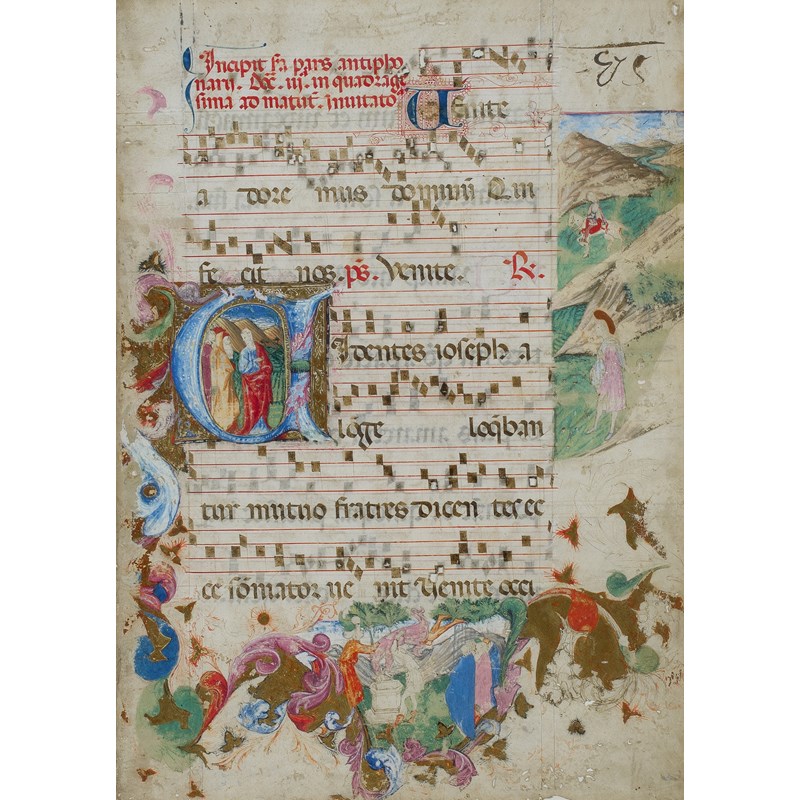 Incipit s̄a pars antipho
narij. Doc̄. iij. in quadrage
sima ad matut̄. Jnuitato
Uenite
a dore mus dominū Qui
fe cit nos. ps̄. Venite. R.
UIdentes ioseph a
lōge loq̄ban
tur mutuo fratres dicen tes ec
ce sōniator ue nit Uenite occi